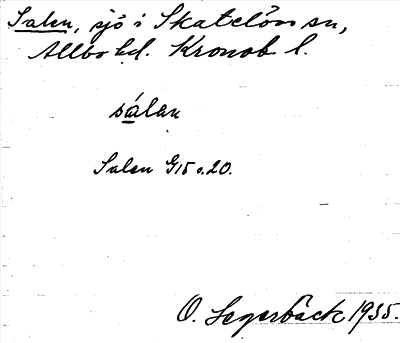 Salen, sjö i Skatelövs sn,
Allbo hd. Kronob l.
sálan
Salen G15 o. 20.
O. Segerbäck 1935.